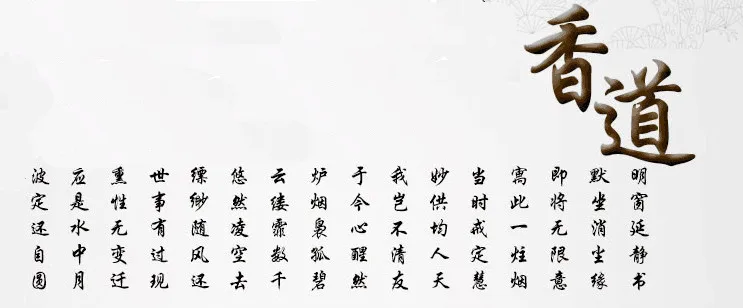 香道
明窗延静书
默坐消尘缘
即将无限意
寓此一炷烟
当时戒定慧
妙供均人天
我岂不清友
于今心醒然
炉烟袅孤碧
云缕霏数千
悠然凌空去
缥缈随风还
世事有过现
熏性无变迁
应是水中月
波定还自圆